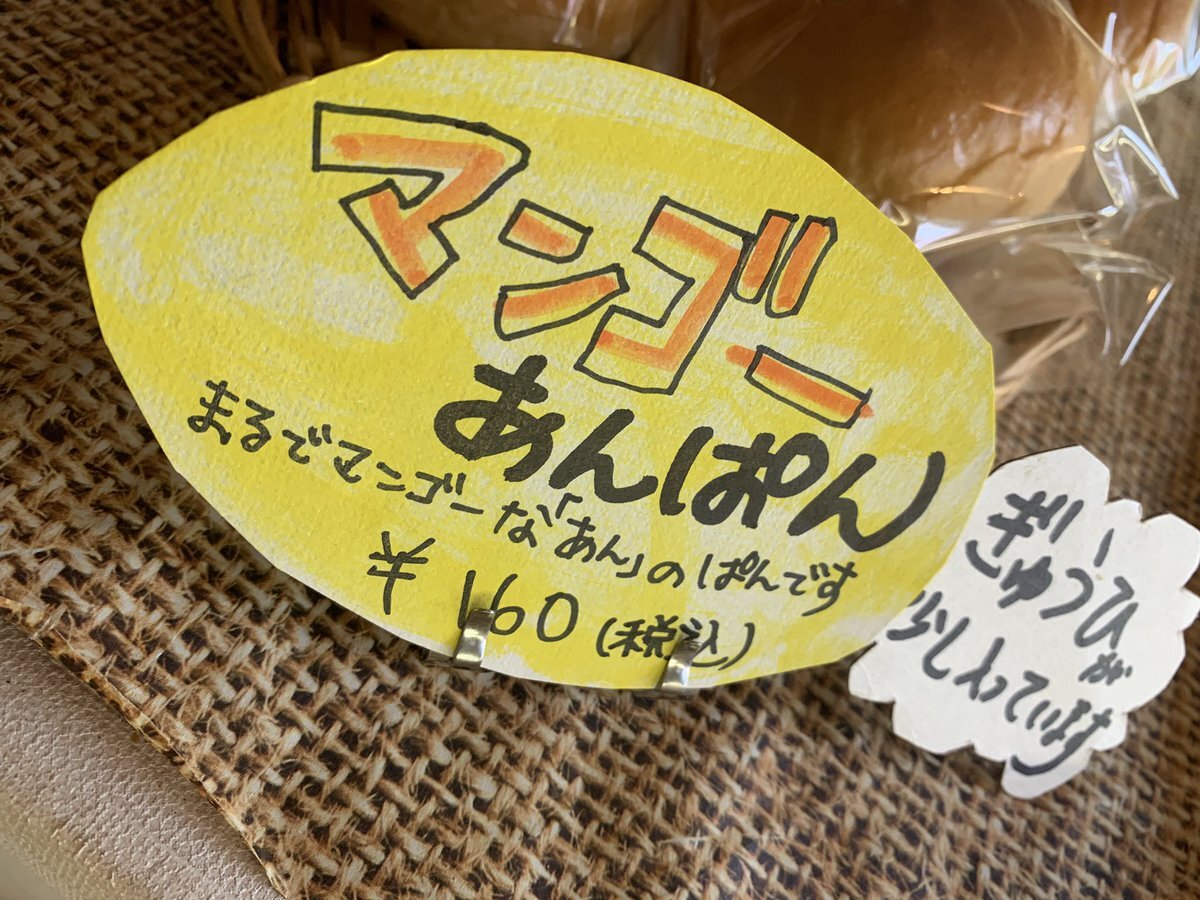 マンゴー
あんぱん
まるでマンゴーな「あん」のぱんです
¥160(税込)
ぎゅうひが
少し入っています